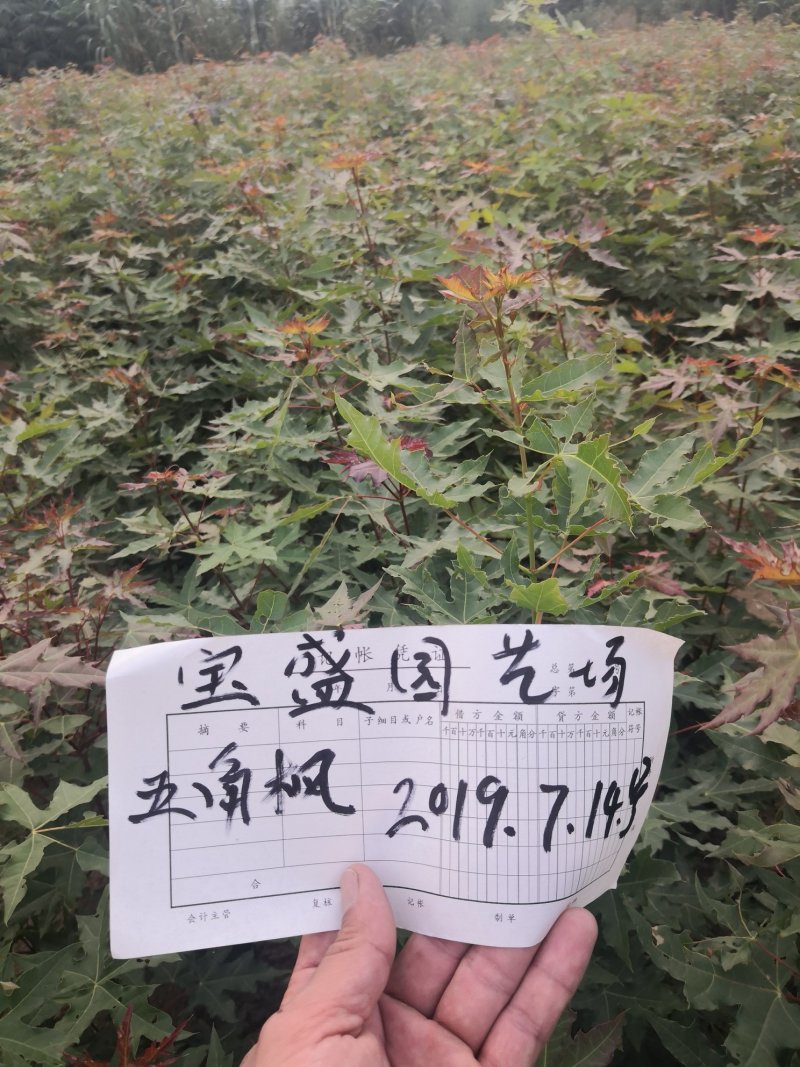 记帐凭证
宝盛园艺场
总 第
字 第
月
摘 要 科 目 子细目或户名 借方金额 贷方金额 记帐符号
千百十万千百十元角分 千百十万千百十元角分
五角枫 2019.7.14号
合
会计主管 复核 记帐 制单